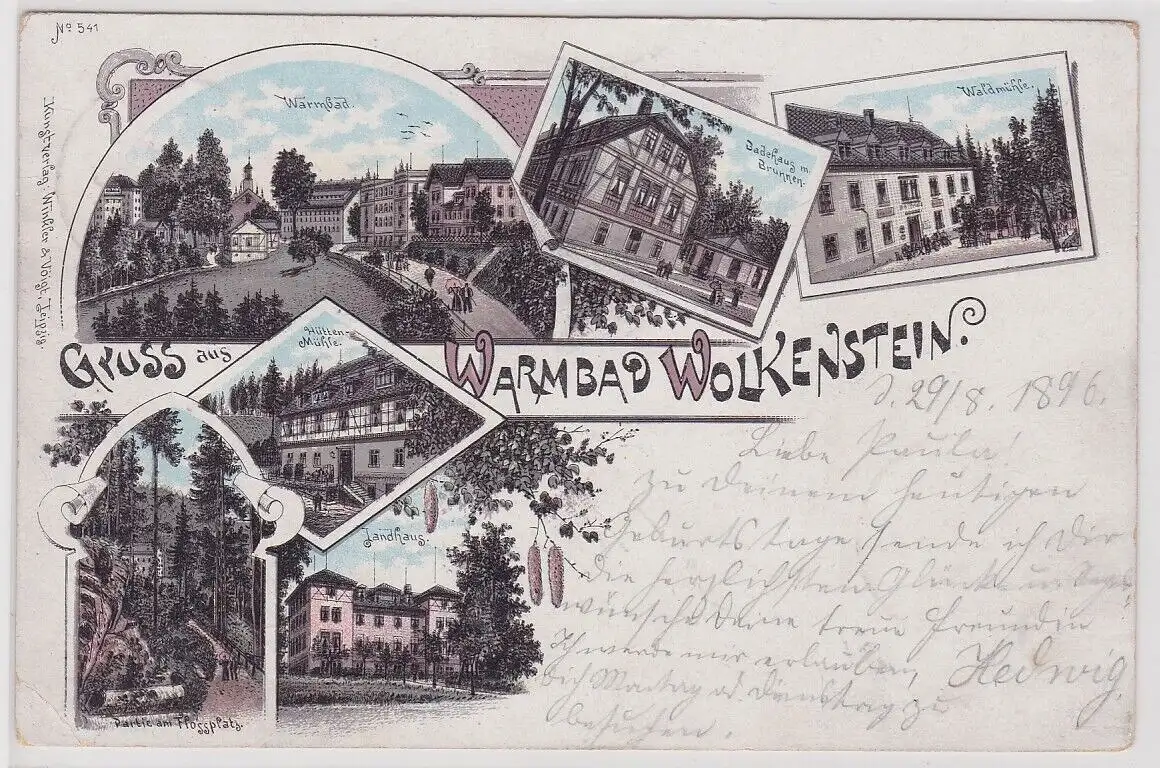 No 541
Kunstverlag: Winkler & Voigt, Leipzig.
Warmbad.
Badehaus m.
Brunnen.
Waldmühle.
Gruss aus
Warmbad Wolkenstein.
Hütten-
Mühle.
Landhaus.
Partie am Flossplatz.
d. 29/8. 1896.
Liebe Paula!
Zu Deinem heutigen
Geburtstage sende ich Dir
die herzlichsten Glück- u. Segens-
wünsche Deine treue Freundin
Hedwig.
Ich werde mir erlauben,
Dich Montag od. Dienstag zu
besuchen.